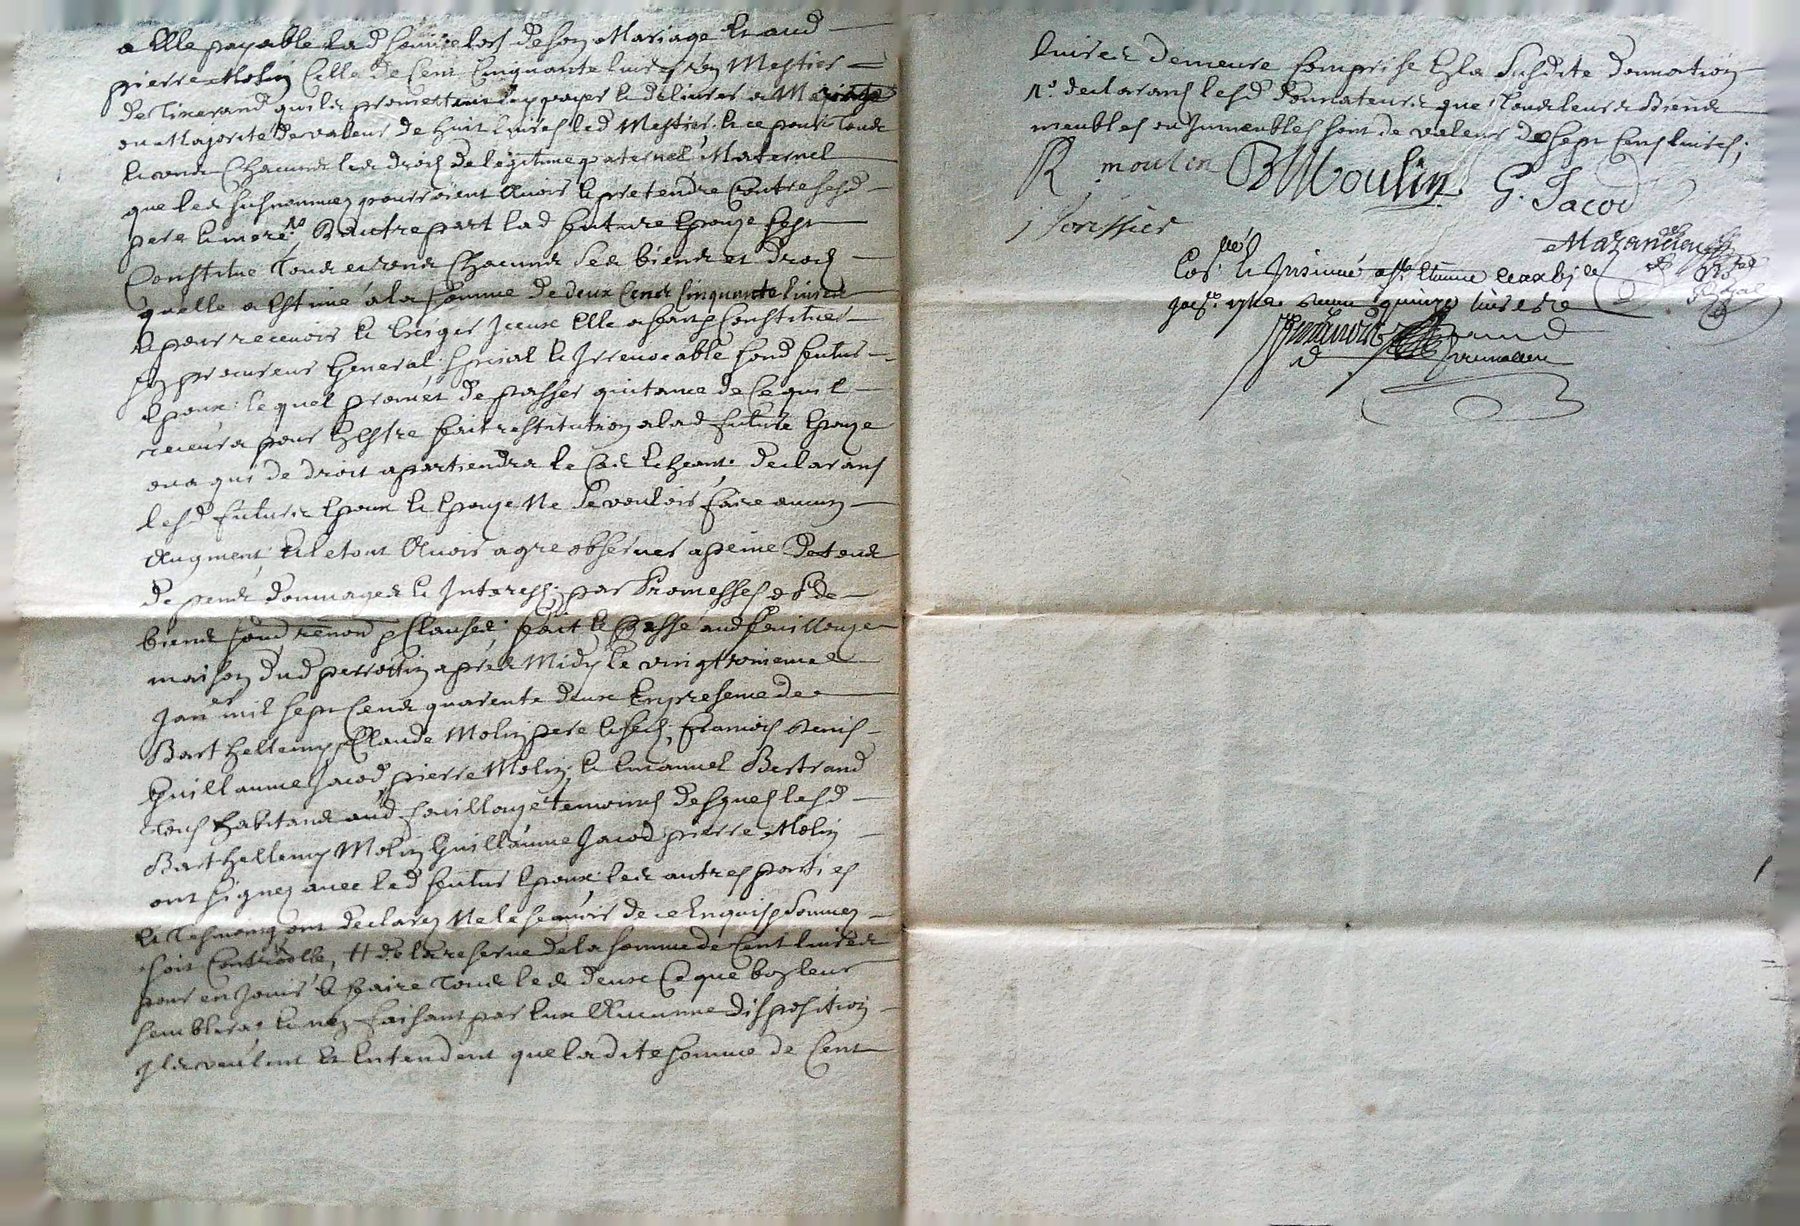 a Elle payable lad somme lors de son Mariage Et aud
pierre Molin Celle de Cent Cinquante livres Un Mestier
de Tixerand quils promettent payer & delivrer a Mariage
ou Majorité de valeur de huit livres led Mestier & ce pour Tous
Et uns Chacuns les droits de legitime paternel Maternel
que les susnommez pourroient Avoir & pretendre Contre lesd
pere & mere, Dautre part lad future Epouze sest
Constitué Tous et uns Chacuns ses biens et droits
quelle a Estimé a la somme de deux Cens Cinquante livres
& pour recevoir & Exiger Iceux Elle a fait & Constitué
son procureur General special & Irrevocable sond futur
Epoux lequel promet de passer quitance de Ce quil
recevra pour En Estre fait restitution a lad future Epouze
ou a qui de droit apartiendra le Cas Echeant declarans
lesd futurs Epoux & Epouze Ne se vouloir faire aucun
Augment, Et le tout Avoir agre observer a peine de tous
depens dommages & Interests par Promesses
biens renon Clauses, fait & Passé aud feuillouze
maison dud perrottin apres Midy le vingt troisieme
Janer mil sept Cens quarente deux En presence de
Barthellemy, Claude Molin pere & fils, francois
Guillaume Jacod, pierre Molin, & Emanuel Bertrand
Tous habitans aud feuillouze temoins desquels lesd
Barthellemy Molin Guillaume Jacod pierre Molin
ont signez avec led futur Epoux les autres parties
& Tesmoins ont declarez Ne le scavoir de ce Enquis & Sommez
soit Controolle, # de la reserve de la somme de Cent livres
pour en Jouir & faire Tous les deux Ce que bon leur
semblera, & n'en faisant par Eux Aucunne disposition
Ils veulent Et Entendent que ladite somme de Cent
livres demeure Comprise En la Susdite donnation
declarans lesd donnateurs que Tous leurs Biens
meubles ou Immeubles sont de valeur de sept Cens livres,
R moulin B Moulin G. Jacod
Mazandieu
& Insinué
quinze livres